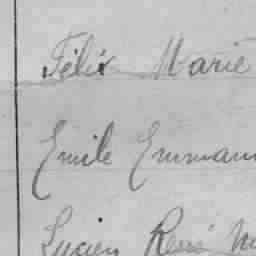 Félix Marie
Emile Emmanu
Lucien René M